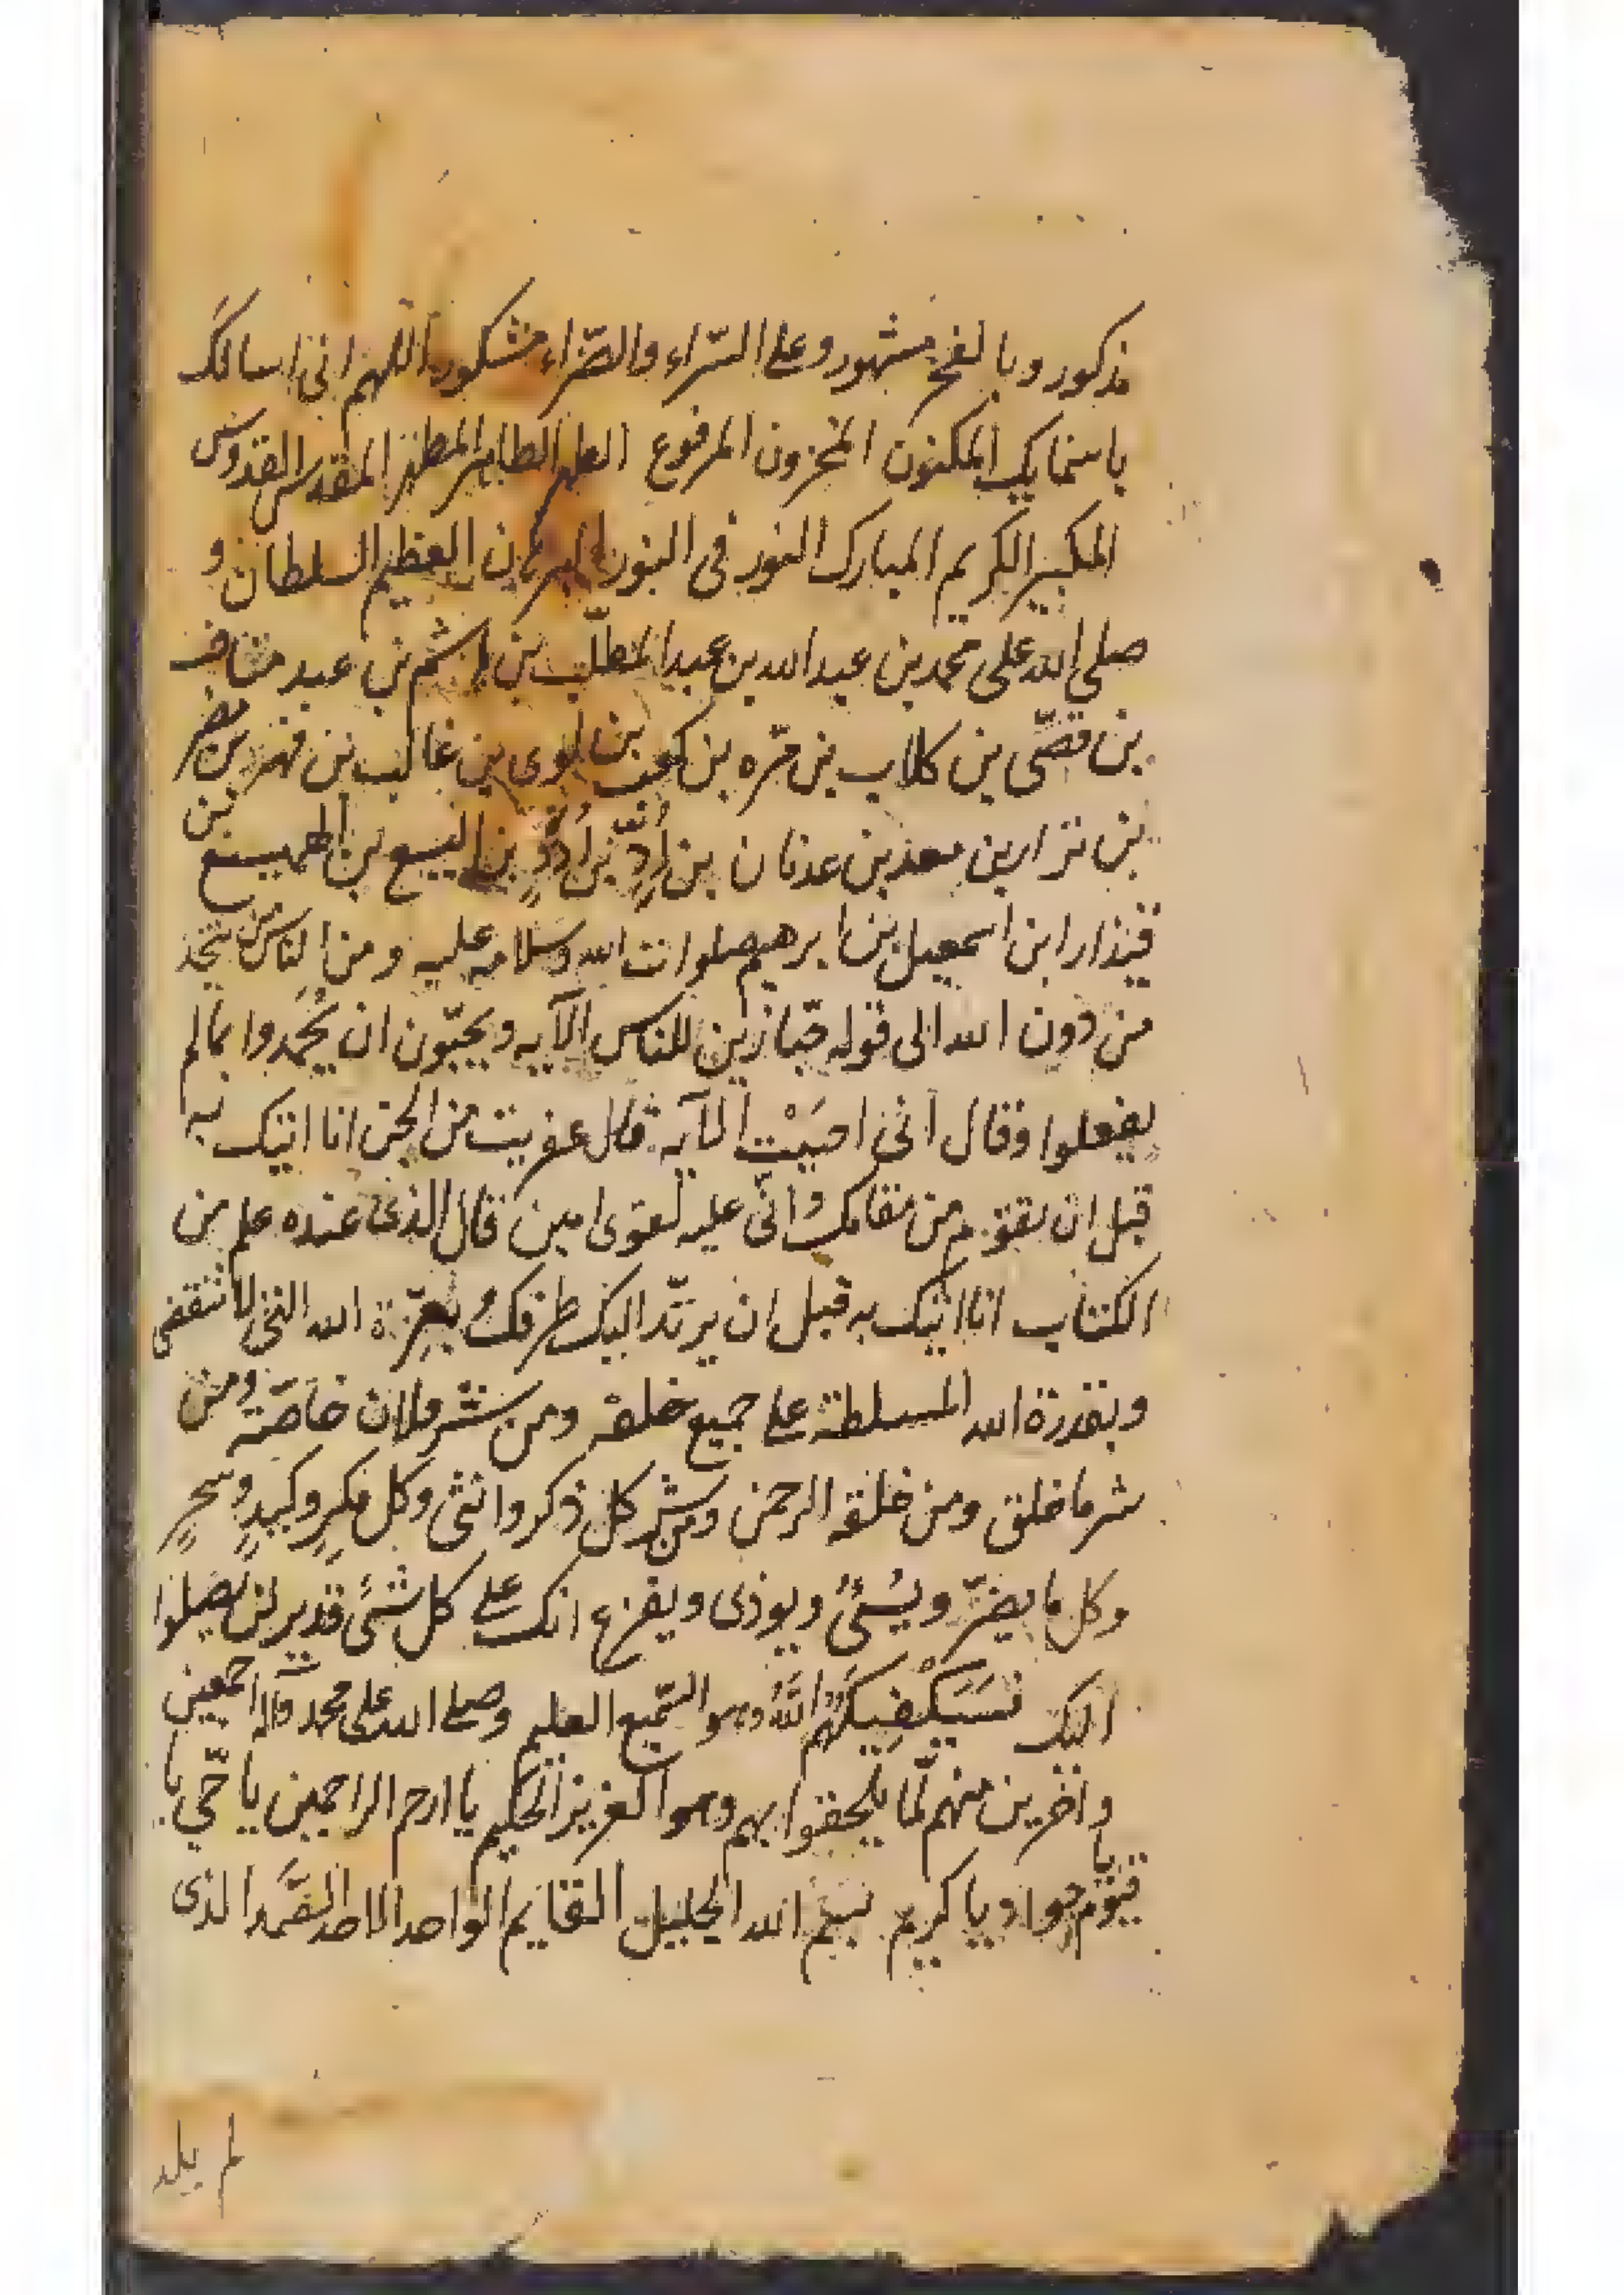 مذكور وبالفخر مشهور وعلى السّراء والضّراء مشكور اللهم انى اسالك
باسمايك المكنون المخزون المرفوع الطهر الطاهر المطهر المقدس القدوس
المكبر الكريم المبارك النور فى النور البرهان العظيم السلطان و
صلى الله على محمد بن عبد الله بن عبد المطلّب بن هاشم بن عبد مناف
بن قصّى بن كلاب بن مرّه بن كعب بن لوى بن غالب بن فهر بن مضر
بن نزار بن معد بن عدنان بن ادٍّ بن اُدَدٍ بن اليسع بن الهميسع بن
قيذار ابن اسمعيل بن ابرهيم صلوات الله وسلامه عليه ومن الناس من يتخذ
من دون الله الى قوله حبّا زين للناس الآيه ويحبّون ان يُحمدوا بمالم
يفعلوا وقال انى احببْت الآيه قال عفريت من الجن انا اتيك به
قبل ان تقوم من مقامك وانّى عليه لقوى امين قال الذى عنده علم من
الكتاب انا اتيك به قبل ان يرتدّ اليك طرفك بعِزّة الله التى لا تنقضى
وبقدرة الله المسلطة على جميع خلقه ومن شر فلان خاصّة ومن
شر ما خلق ومن خلقه الرحمن ومن شر كل ذكر وانثى وكل مكرٍ وكيدٍ وسحرٍ
وكل ما يضرّ ويُسئُ ويوذى ويفزع انك على كل شئ قدير لن يصلوا
اليك فسَيَكْفِيكَهُمُ اللَّهُ وهو السّميع العليم وصلى الله على محمد وآله اجمعين
واخرين منهم لمّا يلحقوا بهم وهو العزيز الحكيم يا ارحم الراحمين يا حّى يا
قيوّم يا جواد يا كريم بسم الله الجليل القايم الواحد الاحد الصَّمد الذى
لم يلد